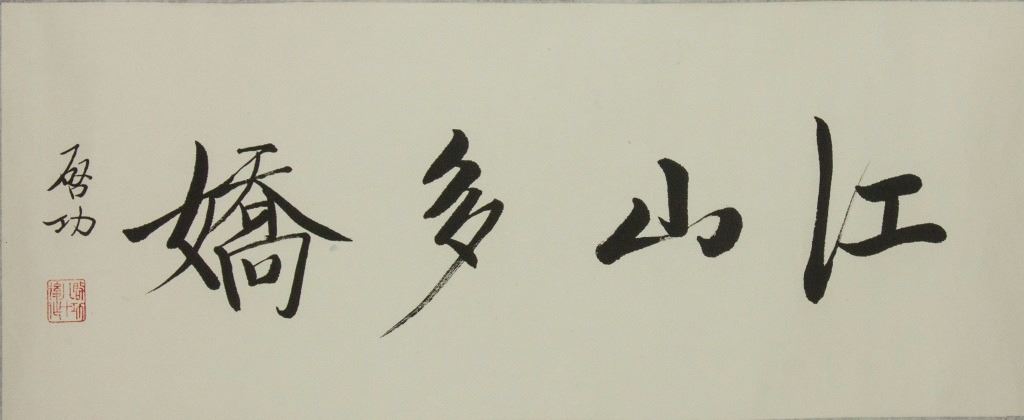 江山多嬌
啓功